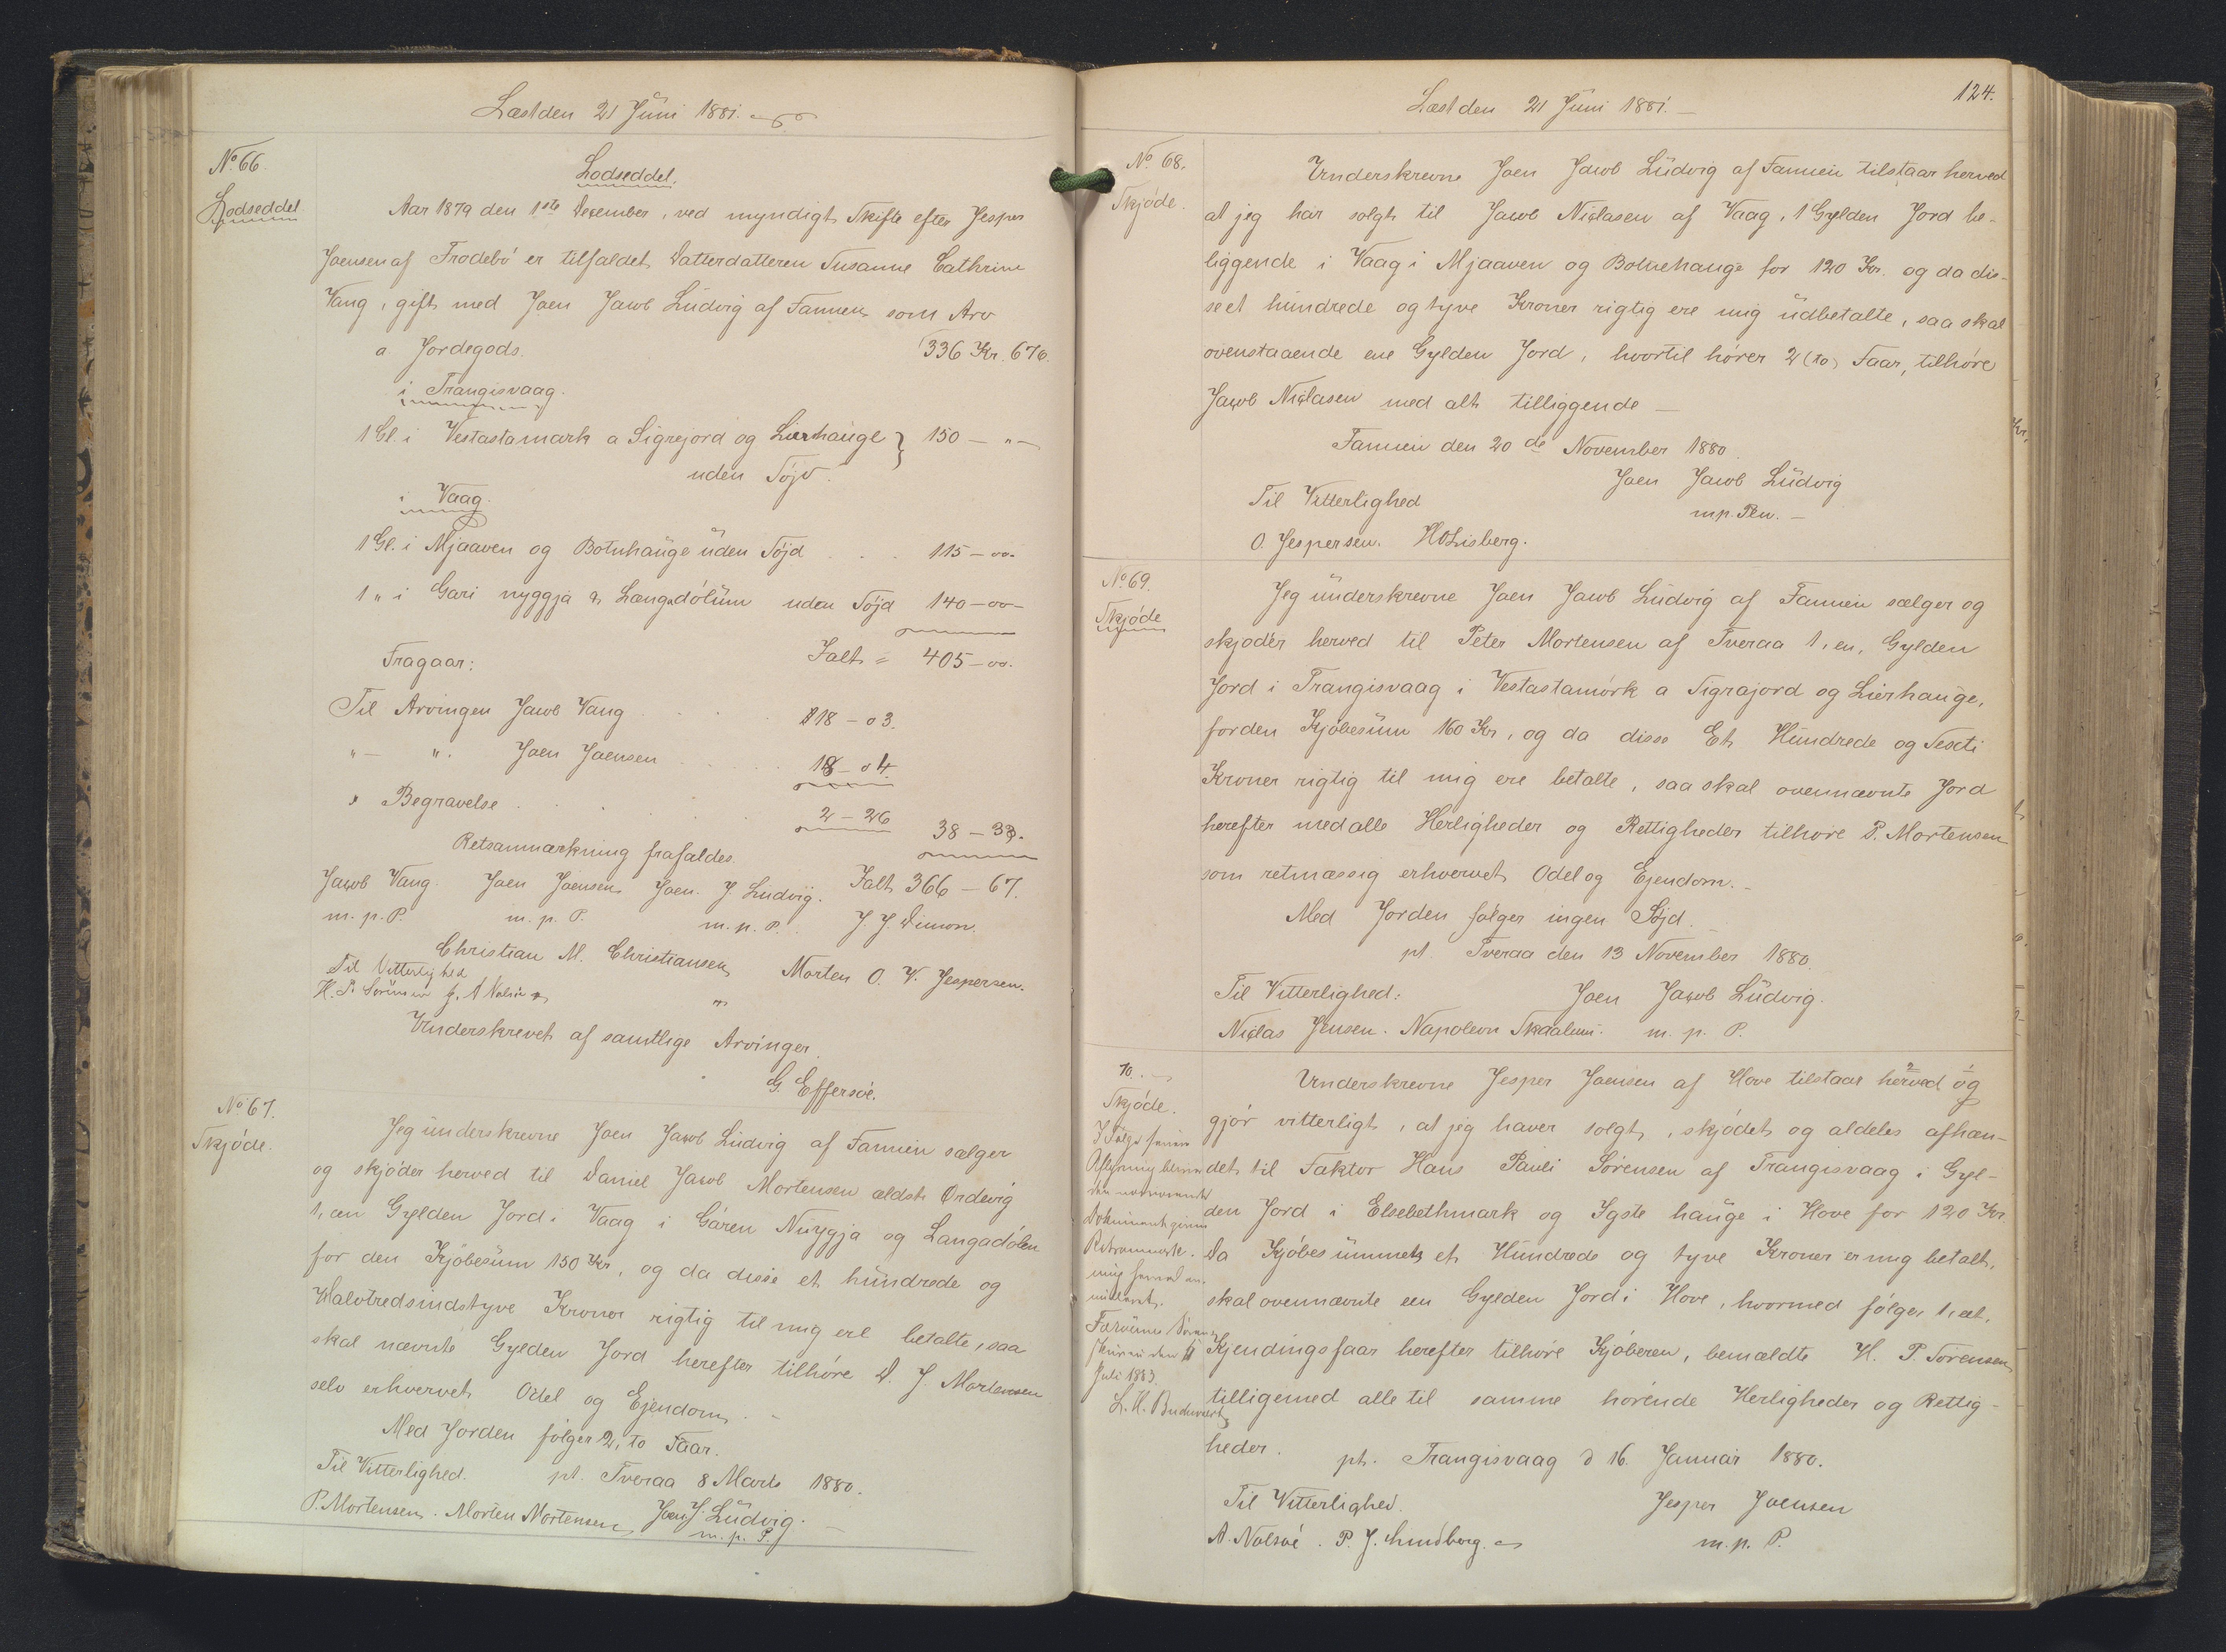 Læst den 21 Juni 1881.
No 66.
Lodseddel
Lodseddel.
Aar 1879 den 1ste December, ved myndigt Skifte efter Jesper
Joensen af Frodebö er tilfaldet Datterdatteren Susanne Cathrine
Vang, gift med Joen Jacob Ludvig af Famien som Arv
a Jordegods. 336 Kr. 67ø.
i Trangisvaag.
1 Gl. i Vestastamark a Sigrejord og Lierhauge } 150 — " —
uden Söjd.
i Vaag.
1 Gl. i Mjaaven og Botnhauge uden Söjd . . . 115 — oo.
1 " i Gari nyggja & Langadölum uden Söjd 140 — oo —
Ialt = 405 — oo.
Fragaar:
Til Arvingen Jacob Vang . . . 18 — 03.
" — " . Joen Joensen . . . . 18 — 04.
" Begravelse . . . . 2 — 26 38 — 33.
Retsanmærkning frafaldes.
Ialt 366 — 67.
Jacob Vang. Joen Joensen Joen. J. Ludvig.
m. p. P. m. p. P. m. p. P. J. J. Dimon.
Christian M. Christiansen Morten O. V. Jespersen.
Til Vitterlighed
H. P. Sörensen A Nolsöe
Underskrevet af samtlige Arvinger.
G. Effersöe.
No 67.
Skjöde.
Jeg underskrevne Joen Jacob Ludvig af Famien sælger
og skjöder herved til Daniel Jacob Mortensen ældste Ordevig
1, en Gylden Jord i Vaag i Gáren Nuyggja og Langadölen
for den Kjöbesum 150 Kr, og da disse et hundrede og
Halvtredsindstyve Kroner rigtig til mig ere betalte, saa
skal nævnte Gylden Jord herefter tilhöre D. J. Mortensen
selv erhvervet Odel og Ejendom. —
Med Jorden fölger 2, to Faar.
Til Vitterlighed. pt. Tveraa 8 Marts 1880.
P. Mortensen. Morten Mortensen Joen J. Ludvig.
m. p. P.
124.
Læst den 21 Juni 1881. —
No 68.
Skjöde.
Underskrevne Joen Jacob Ludvig af Famien tilstaar herved
at jeg har solgt til Jacob Niclasen af Vaag, 1 Gylden Jord be-
liggende i Vaag i Mjaaven og Botnehauge for 120 Kr. og da dis-
se et hundrede og tyve Kroner rigtig ere mig udbetalte, saa skal
ovenstaaende ene Gylden Jord, hvortil hörer 2 (to) Faar, tilhöre
Jacob Niclasen med alt tilliggende —
Famien den 20de November 1880.
Joen Jacob Ludvig
Til Vitterlighed
mp. Pen. —
O. Jespersen. H O Lisberg.
No 69.
Skjöde
Jeg underskrevne Joen Jacob Ludvig af Famien sælger og
skjöder herved til Peter Mortensen af Tveraa 1, en, Gylden
Jord i Trangisvaag i Vestastamörk a Sigrajord og Lierhauge,
for den Kjöbesum 160 Kr, og da disse Et Hundrede og Sexti
Kroner rigtig til mig ere betalte, saa skal ovennævnte Jord
herefter med alle Herligheder og Rettigheder tilhöre P. Mortensen
som retmæssig erhvervet Odel og Ejendom. —
Med Jorden fölger ingen Söjd.
pt. Tveraa den 13 November 1880.
Til Vitterlighed: Joen Jacob Ludvig.
Niclas Jensen. Napoleon Skaalum. m. p. P.
70.
Skjöde.
I Fölge senere
den
Dokument
Retsanmærk-
ning
Færöernes Soren-
skriveri den
Juli 1883.
Underskrevne Jesper Joensen af Hove tilstaar herved og
gjör vitterligt, at jeg haver solgt, skjödet og aldeles afhæn-
det til Faktor Hans Pauli Sörensen af Trangisvaag 1 Gyl-
den Jord i Elsebethmark og Igste hauge i Hove for 120 Kr
Da Kjöbesummen et Hundrede og tyve Kroner er mig betalt,
skal ovennævnte een Gylden Jord i Hove, hvormed fölger 1, et,
Kjendingsfaar herefter tilhöre Kjöberen, bemældte H. P. Sörensen
tilligemed alle til samme hörende Herligheder og Rettig-
heder.
pt. Trangisvaag d 16. Januar 1880.
Til Vitterlighed. Jesper Joensen
A. Nolsöe. P. J. Lundberg. m. p. P.